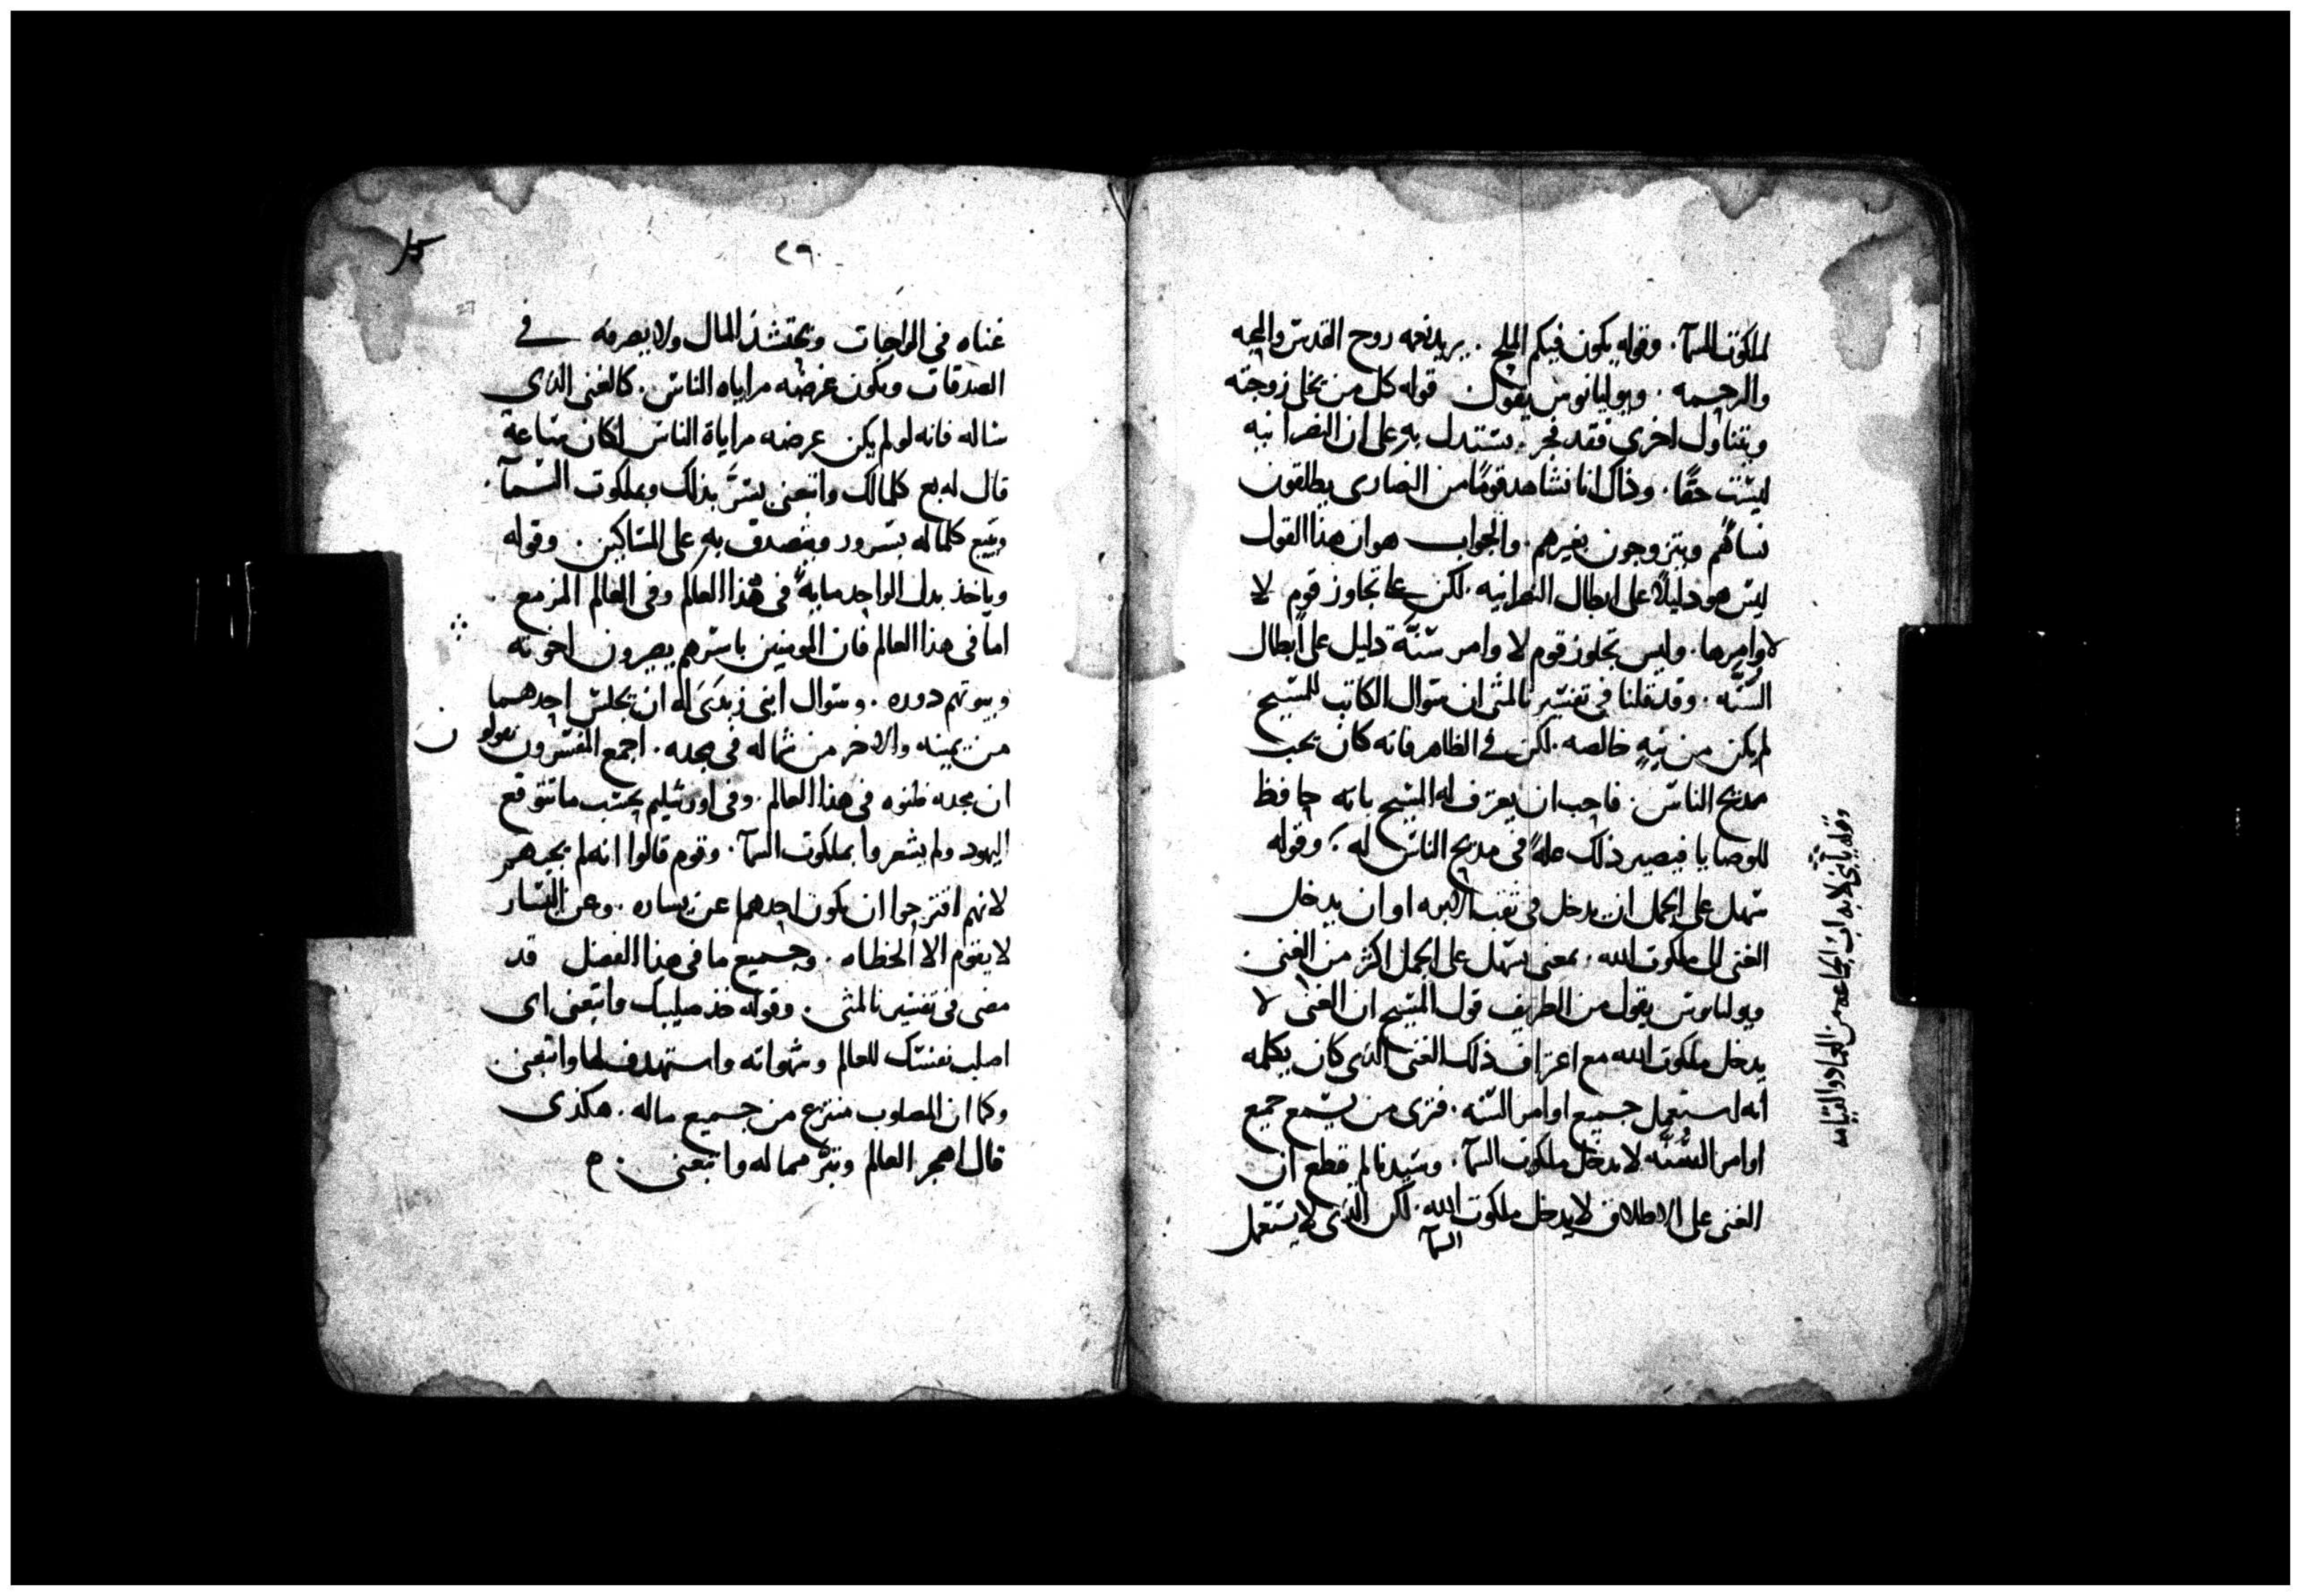 لملكوت السمآ. وقوله يكون فيكم الملح. يريد نعمه روح القدس والمحبه
والرحمه. ويوليانوس يقول قوله كل من يخلي زوجته
ويتناول اخرى فقد فجر. يستدل به على ان النصرانيه
ليست حقًا. وذاك انا نشاهد قومًا من النصارى يطلقون
نساهم ويتزوجون بغيرهم. والجواب هو ان هذا القول
ليس هو دليلاً على ابطال النصرانيه. لكن على تجاوز قوم لا
لاوامرها. وليس تجاوز قوم لاوامر سنّة دليل على ابطال
السنّه. وقد قلنا في تفسيرنا لمتى ان سوال الكاتب للمسيح
لم يكن من نيةٍ خالصه. لكن في الظاهر فانه كان يحب
مديح الناس. فاحب ان يعترف له المسيح بانه حافظ
للوصايا فيصير ذلك علةً في مديح الناس له. وقوله
سهل على الجمل ان يدخل في ثقب الابره او ان يدخل
الغني الى ملكوت الله. بمعنى يسهل على الجمل اكثر من الغني.
ويوليانوس يقول من الطريف قول المسيح ان الغني لا
يدخل ملكوت الله مع اعتراف ذلك الغني الذي كان يكلمه
انه استعمل جميع اوامر السنه. فترى من يسمع جميع
اوامر السُّنّه لا يدخل ملكوت السمآ. وسيدنا لم يقطع ان
الغني على الاطلاق لا يدخل ملكوت الله. لكن الذي لا يستعمل
السمآ
وقوله يا بني لا بد ان الجماعه من العماد والقيامه
٢٦
27
غناه في الواجبات ويحتشد المال ولا يصرفه في
الصدقات ويكون غرضه مراياه الناس. كالغني الذي
ساله فانه لو لم يكن غرضه مراياة الناس لكان ساعة
قال له بع كلما لك واتبعني يسرّ بذلك وبملكوت السمآ.
ويبيع كلما له بسرور ويتصدق به على المساكين. وقوله
وياخذ بدل الواحد مايةً في هذا العالم وفي العالم المزمع.
امّا في هذا العالم فان المومنين باسرهم يصيرون اخوته
وبيوتهم دوره. وسوال ابني زبدى له ان يجلس احدهما
من يمينه والاخر من شماله في مجده. اجمع المفسرون يقولون
ان مجده ظنوه في هذا العالم. وفي اورشليم بحسب ما تتوقع
اليهود ولم يشعروا بملكوت السمآ. وقوم قالوا انه لم يجبهم
لانهم اقترحوا ان يكون احدهما عن يساره. وعن اليسار
لا يقوم الا الخطاه. وجميع ما في هذا الفصل قد
مضى في تفسيرنا لمتى. وقوله خذ صليبك واتبعني اى
اصلب نفسك للعالم وشهواته واستهدف لها واتبعني.
وكما ان المصلوب منتزع من جميع ماله. هكذى
قال اهجر العالم وتبرّ مما له واتبعني. ه